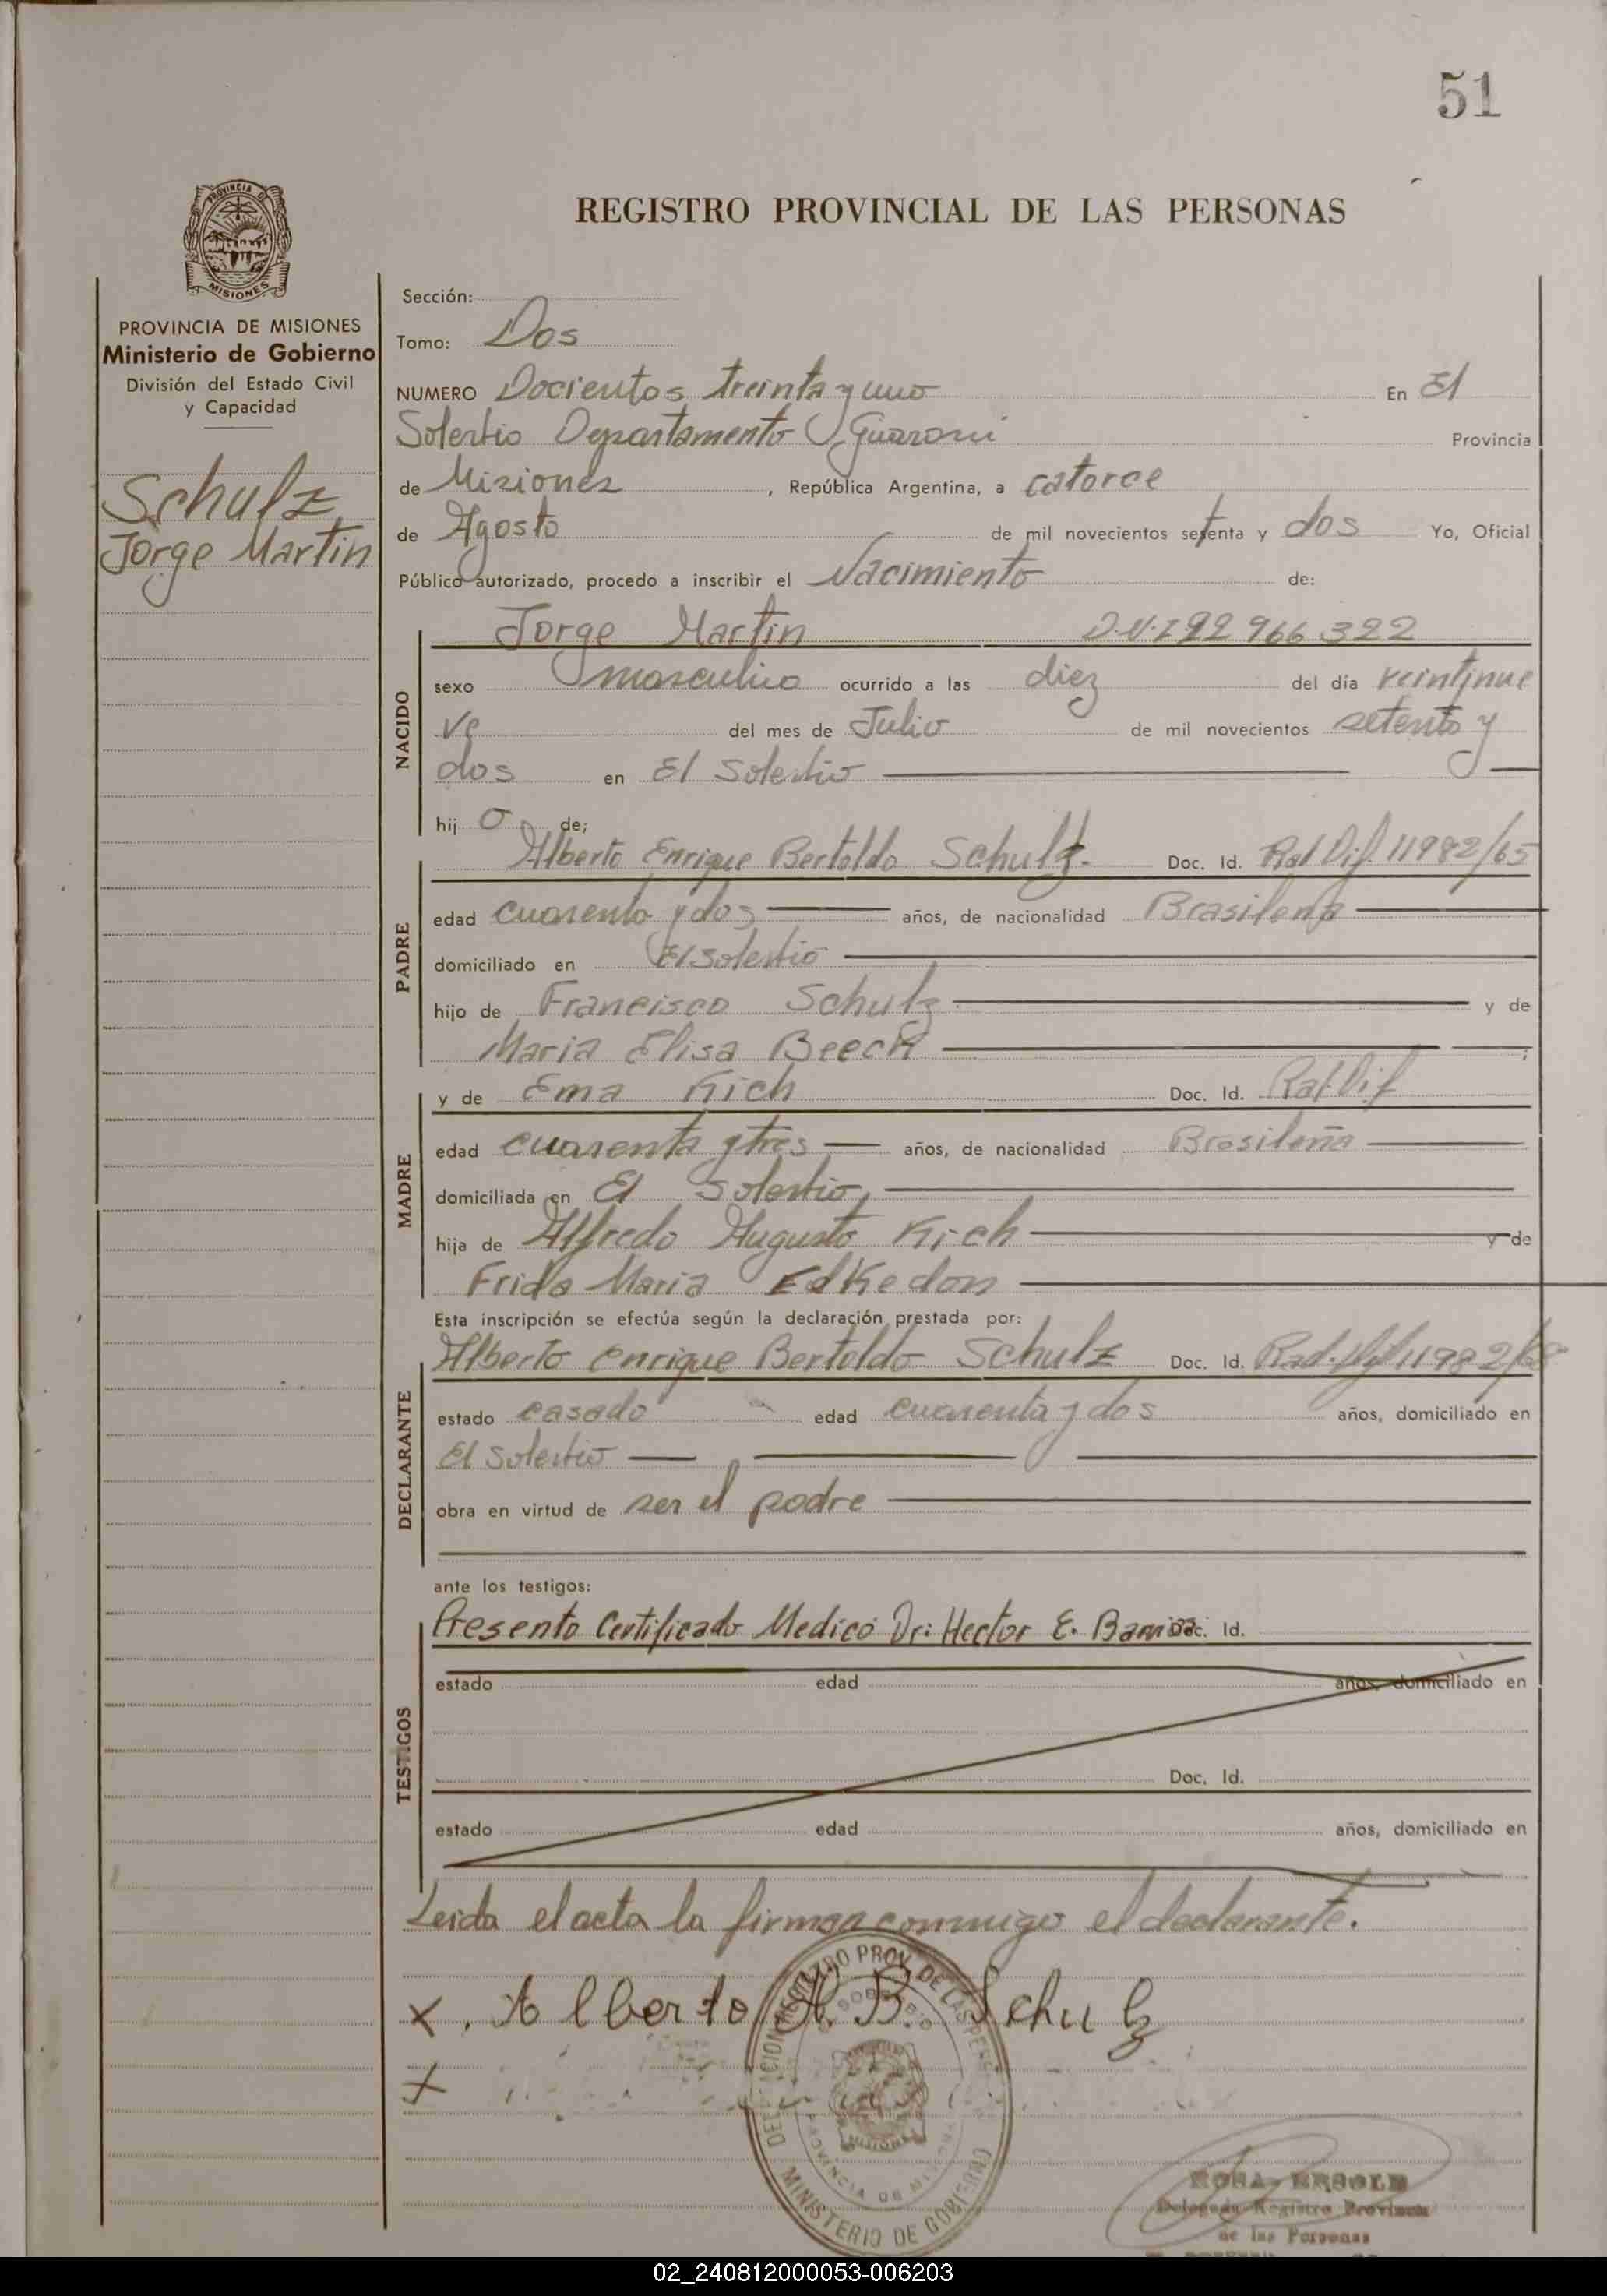 51
PROVINCIA DE
MISIONES
REGISTRO PROVINCIAL DE LAS PERSONAS
PROVINCIA DE MISIONES
Ministerio de Gobierno
División del Estado Civil
y Capacidad
Schulz
Jorge Martin
Sección:
Tomo: Dos
NUMERO Docientos treinta y uno En El
Soberbio Departamento Guarani Provincia
de Misiones, República Argentina, a catorce
de Agosto de mil novecientos setenta y dos Yo, Oficial
Público autorizado, procedo a inscribir el Nacimiento de:
NACIDO
Jorge Martin D.N.I 92 966 322
sexo masculino ocurrido a las diez del día veintinue
ve del mes de Julio de mil novecientos setenta y
dos en El Soberbio
hij o de;
PADRE
Alberto Enrique Bertoldo Schulz. Doc. Id. Rad Dif. 11982/65
edad cuarenta y dos años, de nacionalidad Brasileña
domiciliado en El Soberbio
hijo de Francisco Schulz y de
Maria Elisa Beech ;
MADRE
y de Ema Kich Doc. Id. Rad. Dif
edad cuarenta y tres años, de nacionalidad Brasileña
domiciliada en El Soberbio,
hija de Alfredo Augusto Kich y de
Frida Maria
Esta inscripción se efectúa según la declaración prestada por:
DECLARANTE
Alberto Enrique Bertoldo Schulz Doc. Id. Rad. 11982/
estado casado edad cuarenta y dos años, domiciliado en
El Soberbio
obra en virtud de ser el padre
ante los testigos:
TESTIGOS
Presento Certificado Medico Dr: Hector E. Doc. Id.
estado edad años, domiciliado en
Doc. Id.
estado edad años, domiciliado en
Leida el acta la firman conmigo el declarante.
x. Alberto H. B. Schulz
x
REGISTRO PROV. DE LAS PERS
PROVINCIA DE MISIONES
MISIONES
MINISTERIO DE GOBIERNO
ROSA
Delegada Registro Provincia
de las Personas
02_240812000053-006203